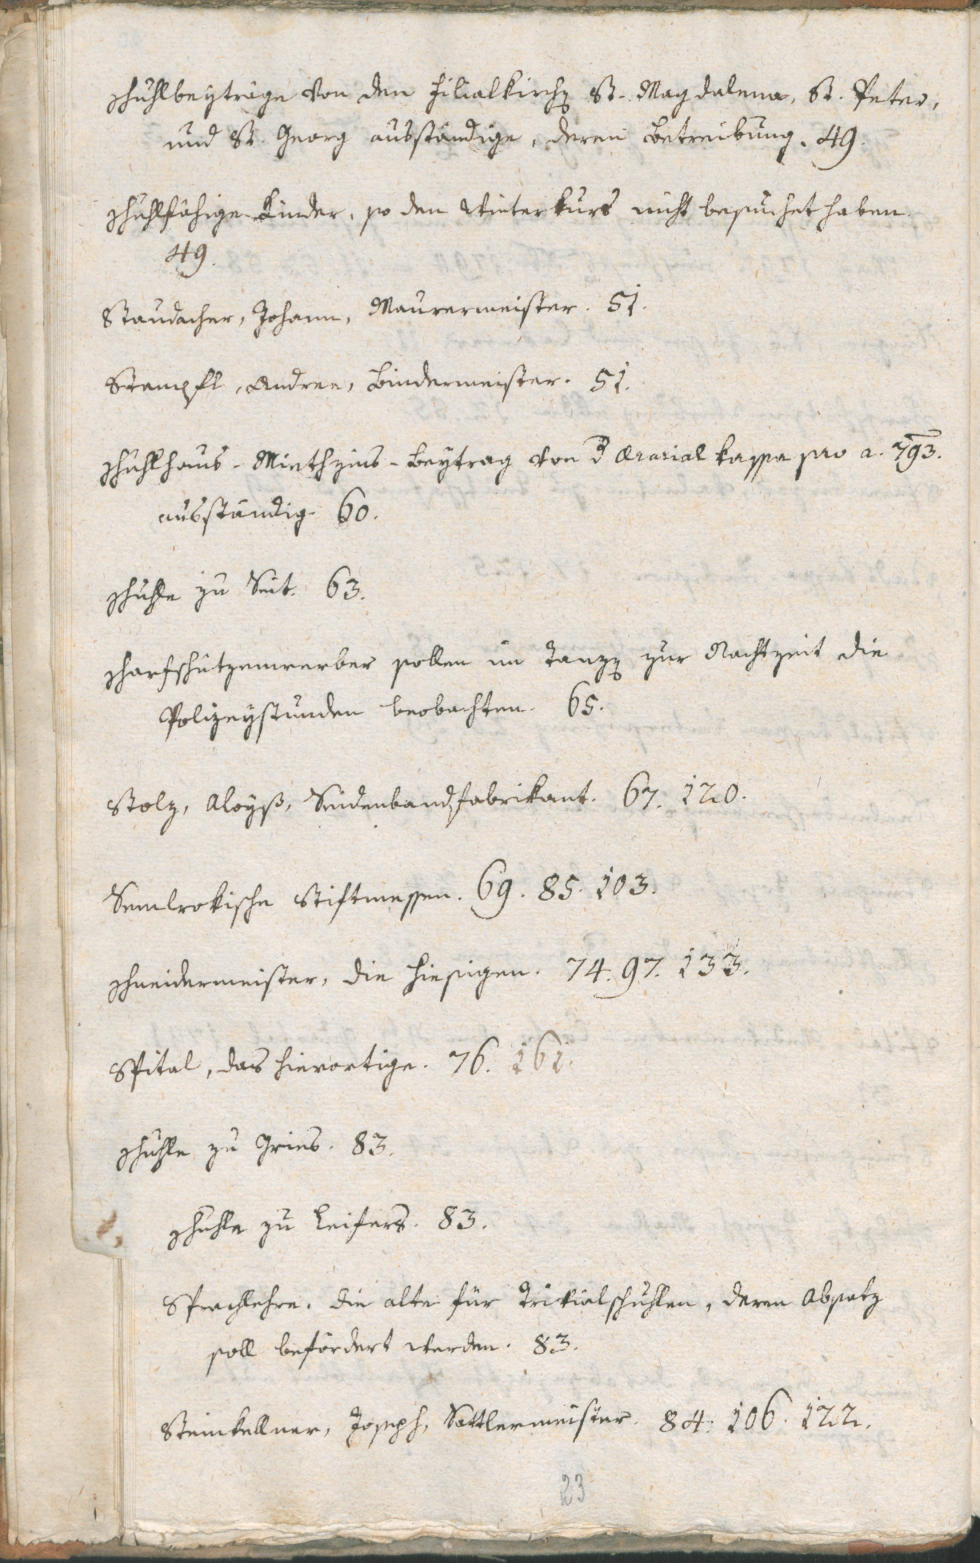 Schuhlbeyträge von den Filialkirchen St. Magdalena, St. Peter,
und St. Georg ausständige, deren Betreibung. 49.
Schuhlfähige Kinder, so den Winterkurs nicht besuchet haben.
49.
Staudacher, Johann, Maurermeister. 51.
Stampfl, Andree, Bindermeister. 51.
Schuhlhaus-Miethzins-Beytrag von d Ærarialkassa pro a. 793.
ausständig. 60.
Schuhle zu Seit. 63.
Scharfschützenwerber sollen im Tanzen zur Nachtzeit die
Polizeystunden beobachten. 65.
Stolz, Aloyß, Seidenbandfabrikant. 67. 120.
Semlrokische Stiftmessen. 69. 85. 103.
Schneidermeister, die hiesigen. 74. 97. 133.
Spital, das hierortige. 76. 161.
Schuhle zu Gries. 83.
Schuhle zu Leifers. 83.
Sprachlehre, die alte für Trivialschuhlen, deren Absatz
soll befördert werden. 83.
Steinkellner, Joseph, Sattlermeister. 84. 106. 122.
23